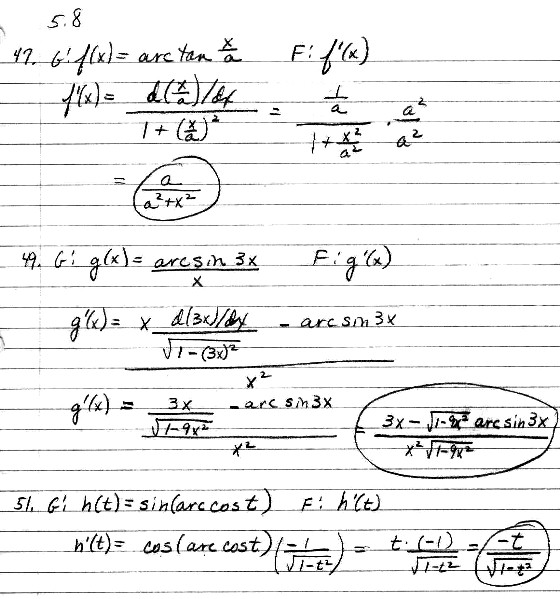 5.8
47. G: f(x) = arctan x/a F: f'(x)
f'(x) = (d(x/a)/dx)/(1 + (x/a)²) = (1/a)/(1 + x²/a²) · a²/a²
= a/(a² + x²)
49. G: g(x) = (arcsin 3x)/x F: g'(x)
g'(x) = (x (d(3x)/dx)/√(1-(3x)²) - arcsin 3x)/x²
g'(x) = (3x/√(1-9x²) - arc sin 3x)/x² = (3x - √(1-9x²) arcsin 3x)/(x² √(1-9x²))
51. G: h(t) = sin(arccos t) F: h'(t)
h'(t) = cos(arccost)(-1/√(1-t²)) = t·(-1)/√(1-t²) = -t/√(1-t²)